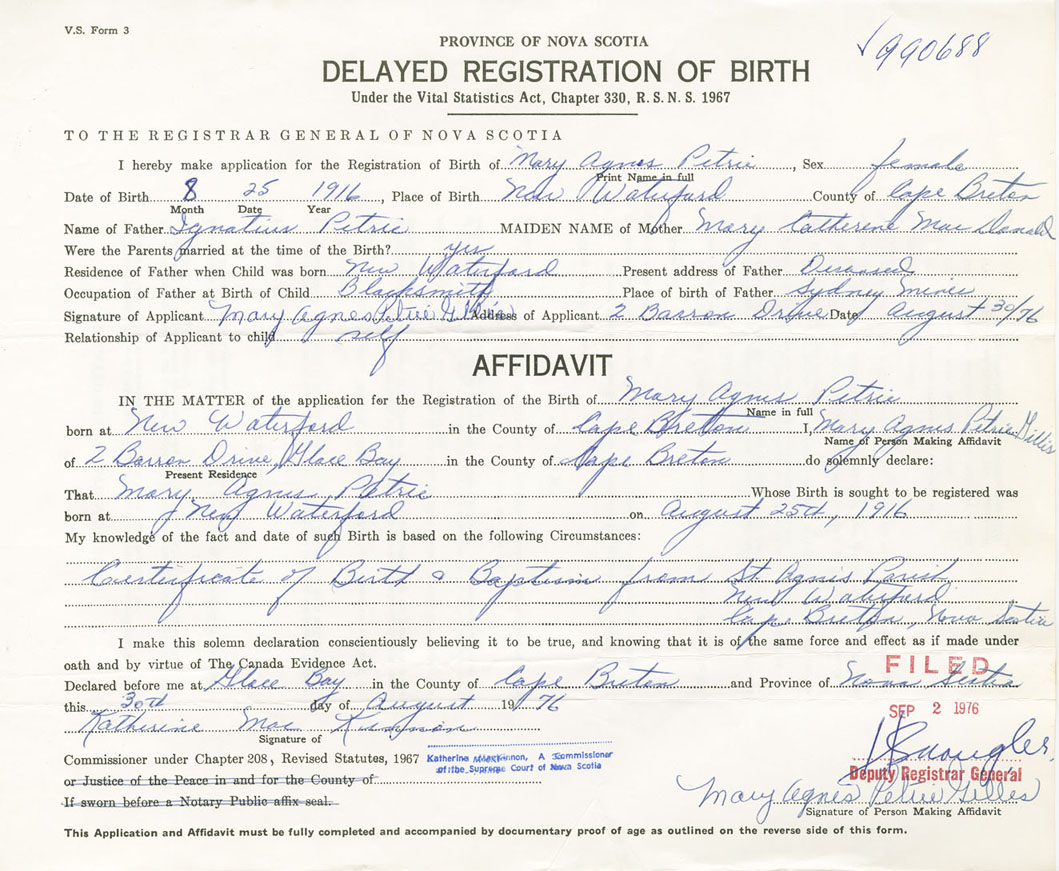 V.S. Form 3
990688
PROVINCE OF NOVA SCOTIA
DELAYED REGISTRATION OF BIRTH
Under the Vital Statistics Act, Chapter 330, R.S.N.S. 1967
TO THE REGISTRAR GENERAL OF NOVA SCOTIA
I hereby make application for the Registration of Birth of Mary Agnes Petrie, Sex female
Print Name in full
Date of Birth 8 25 1916, Place of Birth New Waterford County of Cape Breton
Month Date Year
Name of Father Ignatius Petrie MAIDEN NAME of Mother Mary Catherine Mac Donald
Were the Parents married at the time of the Birth? yes
Residence of Father when Child was born New Waterford Present address of Father Deceased
Occupation of Father at Birth of Child Blacksmith Place of birth of Father Sydney Mines
Signature of Applicant Mary Agnes Petrie Gillis Address of Applicant 2 Barron Drive Date August 30/76
Relationship of Applicant to child self
AFFIDAVIT
IN THE MATTER of the application for the Registration of the Birth of Mary Agnes Petrie
Name in full
born at New Waterford in the County of Cape Breton I, Mary Agnes Petrie Gillis
Name of Person Making Affidavit
of 2 Barron Drive, Glace Bay in the County of Cape Breton do solemnly declare:
Present Residence
That Mary Agnes Petrie Whose Birth is sought to be registered was
born at New Waterford on August 25th, 1916
My knowledge of the fact and date of such Birth is based on the following Circumstances:
Certificate of Birth & Baptism from St Agnis Parish
New Waterford
Cape Breton, Nova Scotia
I make this solemn declaration conscientiously believing it to be true, and knowing that it is of the same force and effect as if made under
oath and by virtue of The Canada Evidence Act.
FILED
Declared before me at Glace Bay in the County of Cape Breton and Province of Nova Scotia
this 30th day of August 1976
SEP 2 1976
Katherine Mac Kinnon
Signature of
Commissioner under Chapter 208, Revised Statutes, 1967
Katherine MacKinnon, A Commissioner
of the Supreme Court of Nova Scotia
or Justice of the Peace in and for the County of
Deputy Registrar General
If sworn before a Notary Public affix seal.
Mary Agnes Petrie Gilles
Signature of Person Making Affidavit
This Application and Affidavit must be fully completed and accompanied by documentary proof of age as outlined on the reverse side of this form.